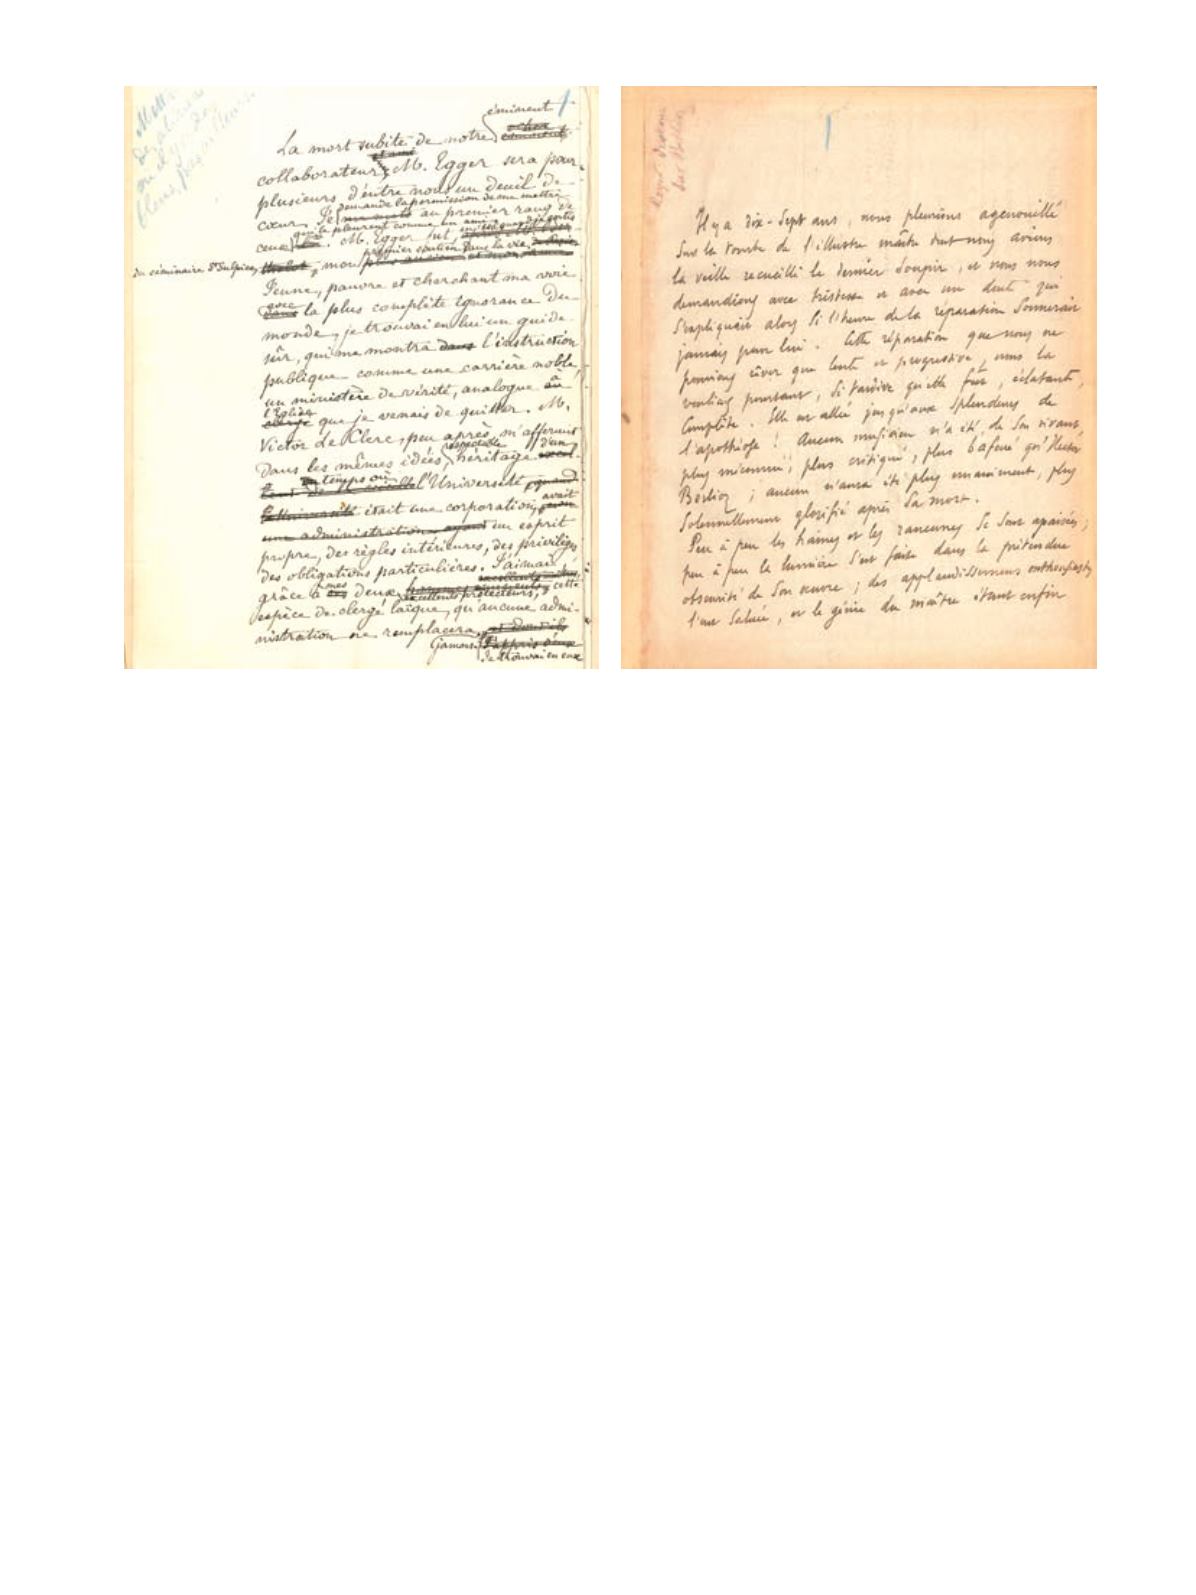 1
éminent
La mort subite de notre
et ami
collaborateur M. Egger sera pour
plusieurs d'entre nous un deuil de
demande la permission de me mettre
cœur. Je au premier rang de
qui le pleurent comme un ami
ceux. M. Egger fut,
premier soutien dans la vie,
du séminaire St Sulpice, mon
Jeune, pauvre et cherchant ma voie
avec
dans la plus complète ignorance du
monde, je trouvai en lui un guide
sûr, qui me montra dans l'instruction
publique comme une carrière noble,
à
un ministère de vérité, analogue au
l'Église
clergé que je venais de quitter. M.
Victor Le Clerc, peu après, m'affermit
respectable d'un
dans les mêmes idées, héritage
temps où
l'Université, quand
avait
l'Université était une corporation,
une administration ayant un esprit
propre, des règles intérieures, des privilèges
des obligations particulières. J'aimai
mes
grâce à deux excellents protecteurs, cette
espèce de clergé laïque, qu'aucune admi-
nistration ne remplacera
jamais
Je trouvai en eux
1
Il y a dix-sept ans, nous pleurions agenouillé
sur la tombe de l'illustre maître dont nous avions
la veille recueilli le dernier soupir, et nous nous
demandions avec tristesse et avec un doute qui
s'expliquait alors si l'heure de la réparation sonnerait
jamais pour lui. Cette réparation que nous ne
pouvions rêver que lente et progressive, nous la
voulions pourtant, si tardive qu'elle fût, éclatante,
complète. Elle est allée jusqu'aux splendeurs de
l'apothéose! Aucun musicien n'a été, de son vivant,
plus méconnu, plus critiqué, plus bafoué qu'Hector
Berlioz; aucun n'aura été plus unanimement, plus
solennellement glorifié après sa mort.
Peu à peu les haines et les rancunes se sont apaisées;
peu à peu la lumière s'est faite dans la prétendue
obscurité de son œuvre; des applaudissements enthousiastes
l'ont saluée, et le génie du maître étant enfin